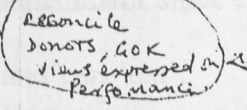 Reconcile
DONORS, GOK
views expressed on
Performance